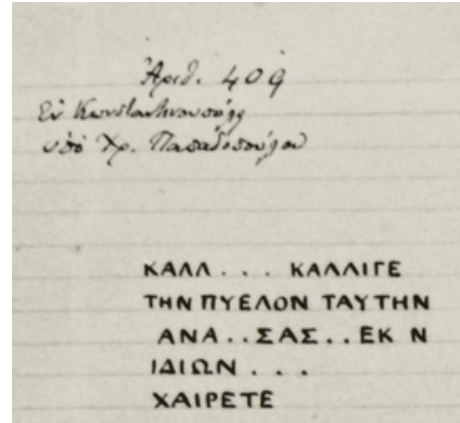 Ἀριθ. 409
Ἐν Κωνσταντινουπόλει
ὑπὸ Χρ. Παπαδοπούλου
ΚΑΛΛ . . . ΚΑΛΛΙΓΕ
ΤΗΝ ΠΥΕΛΟΝ ΤΑΥΤΗΝ
ΑΝΑ . . ΣΑΣ . . ΕΚ Ν
ΙΔΙΩΝ . . .
ΧΑΙΡΕΤΕ